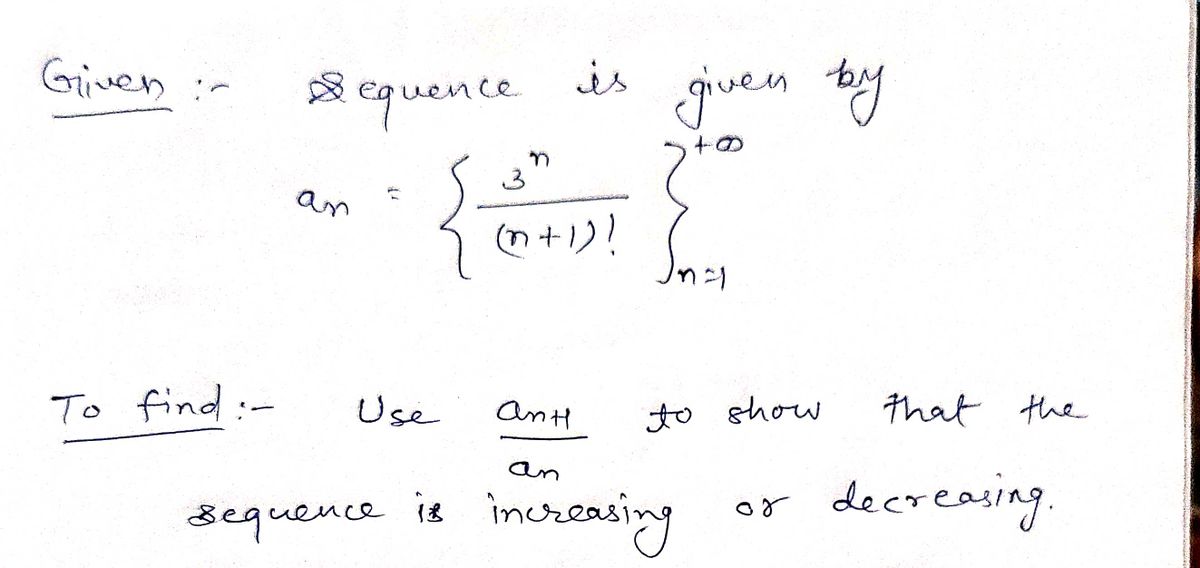 Given :- Sequence is given by
an = { 3^n / (n+1)! }^{+∞}_{n=1}
To find :- Use an+1 / an to show that the
sequence is increasing or decreasing.